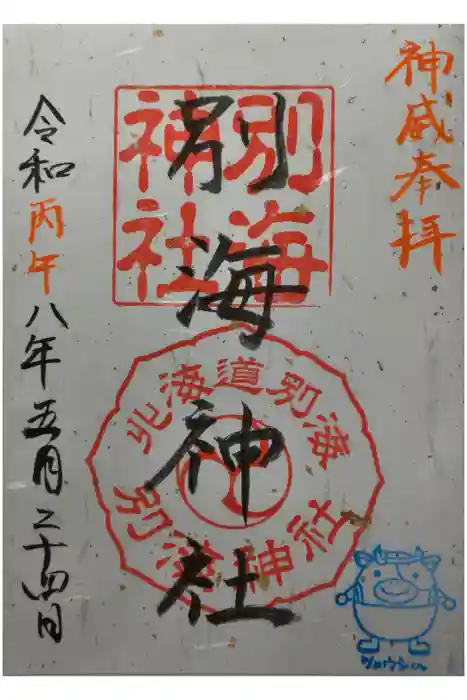 神威奉拝
別海神社
別海
神社
北海道別海
別海神社
令和丙午八年五月二十四日